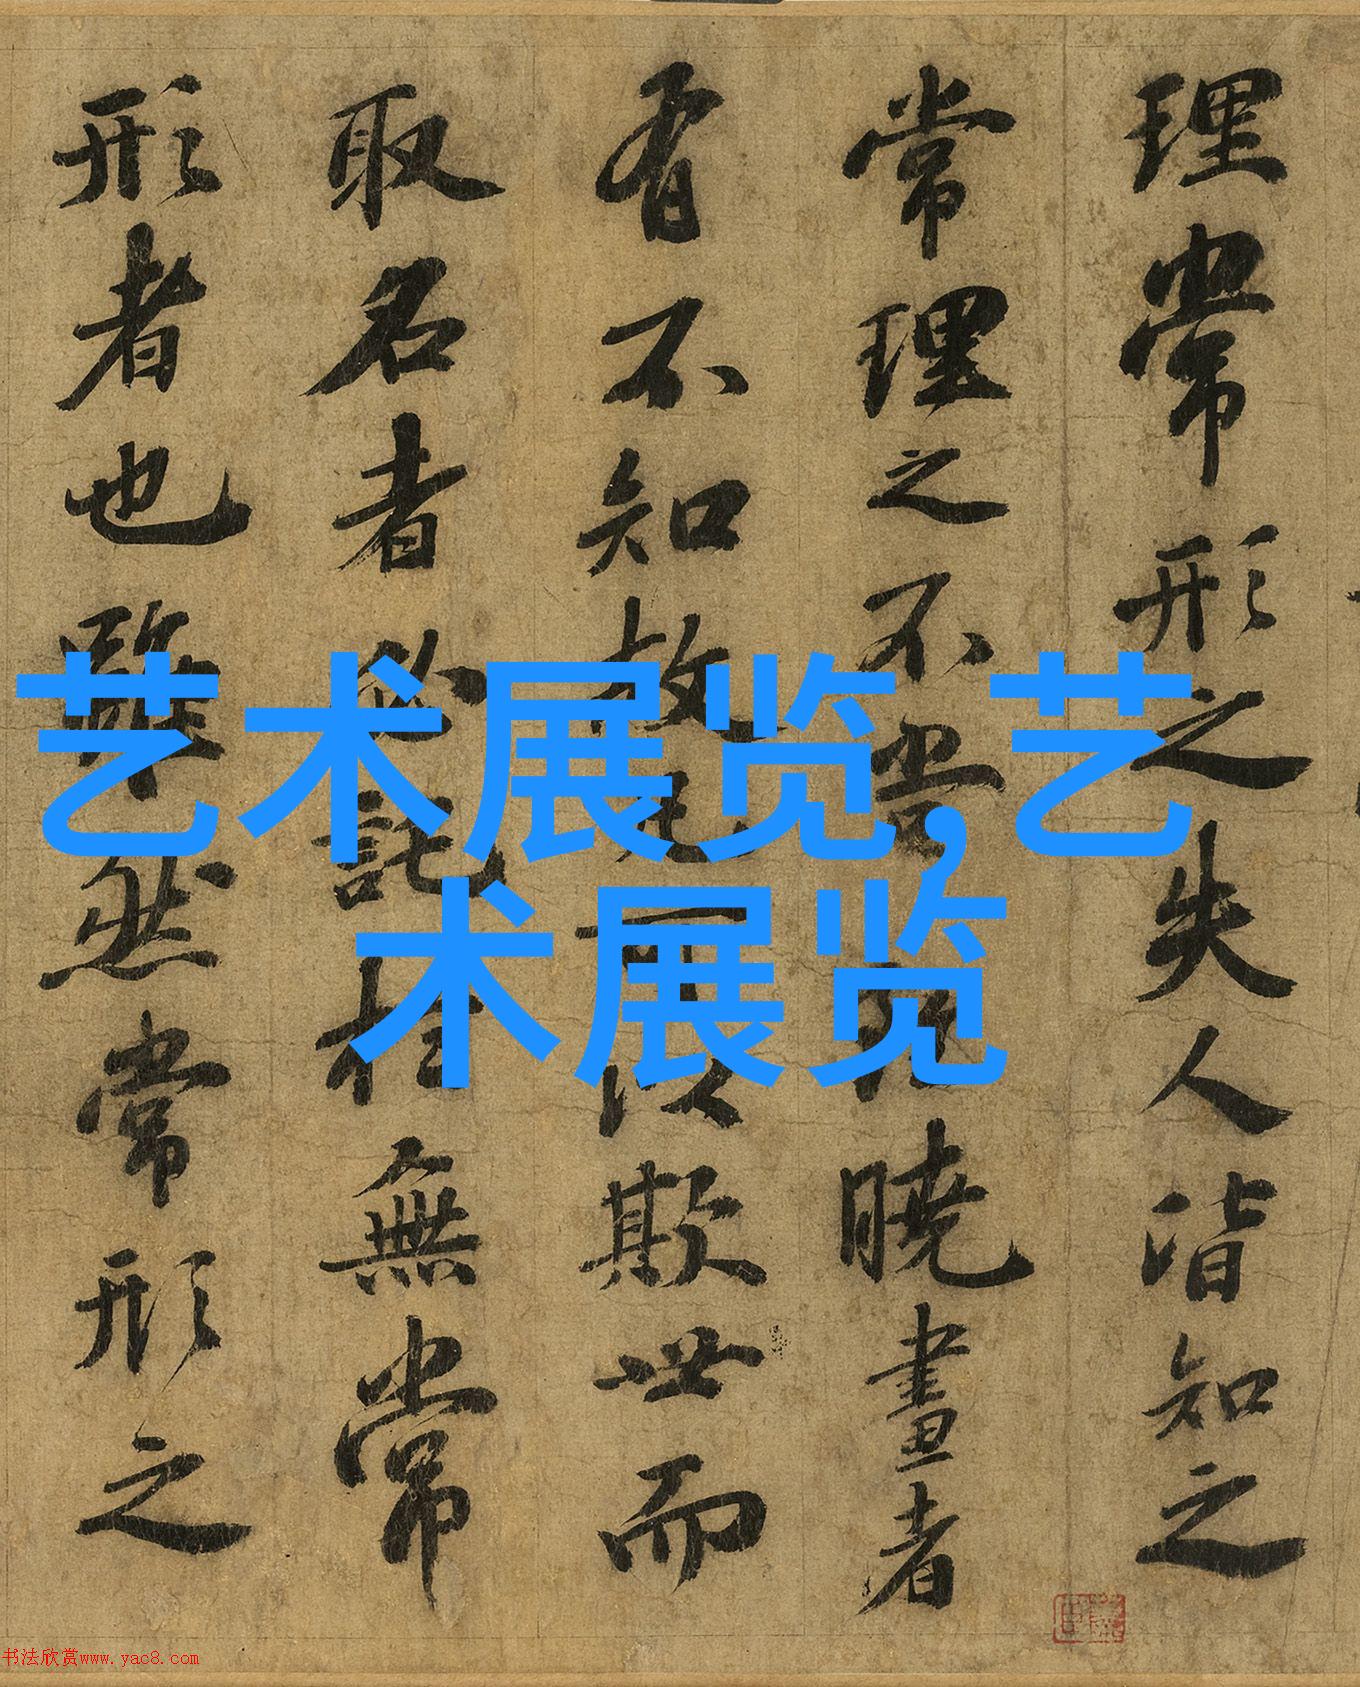 理常形之失人皆知之
常理之不當曉畫者
有不知故凡可以欺世而
取名者必託於無常
形者也雖然常形之
艺术展览,艺
术展览
书法欣赏www.yac8.com